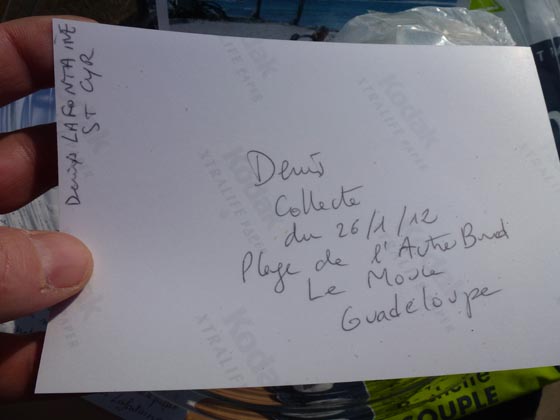 Denis LAFONTAINE
ST CYR
Denis
Collecte
du 26/1/12
Plage de l'Autre Bord
Le Moule
Guadeloupe
Kodak
XTRALIFE PAPER
Kodak
XTRALIFE PAPER
Kodak
XTRALIFE PAPER
Kodak
XTRALIFE PAPER
COUPLE